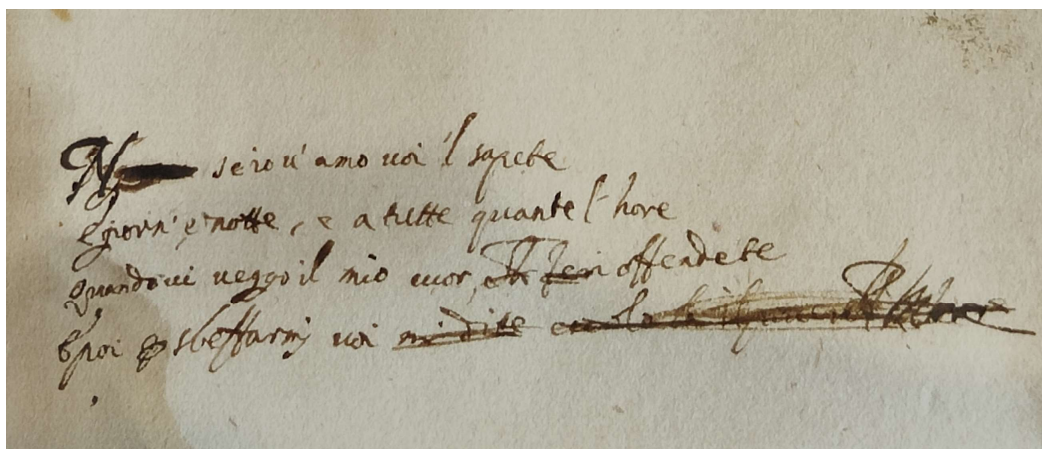 N se io v'amo voi 'l sapete
E giorn' e notte, e a tutte quante l'hore
Quando vi veggo il mio cuor offendete
E poi p sbeffarmi voi mi dite